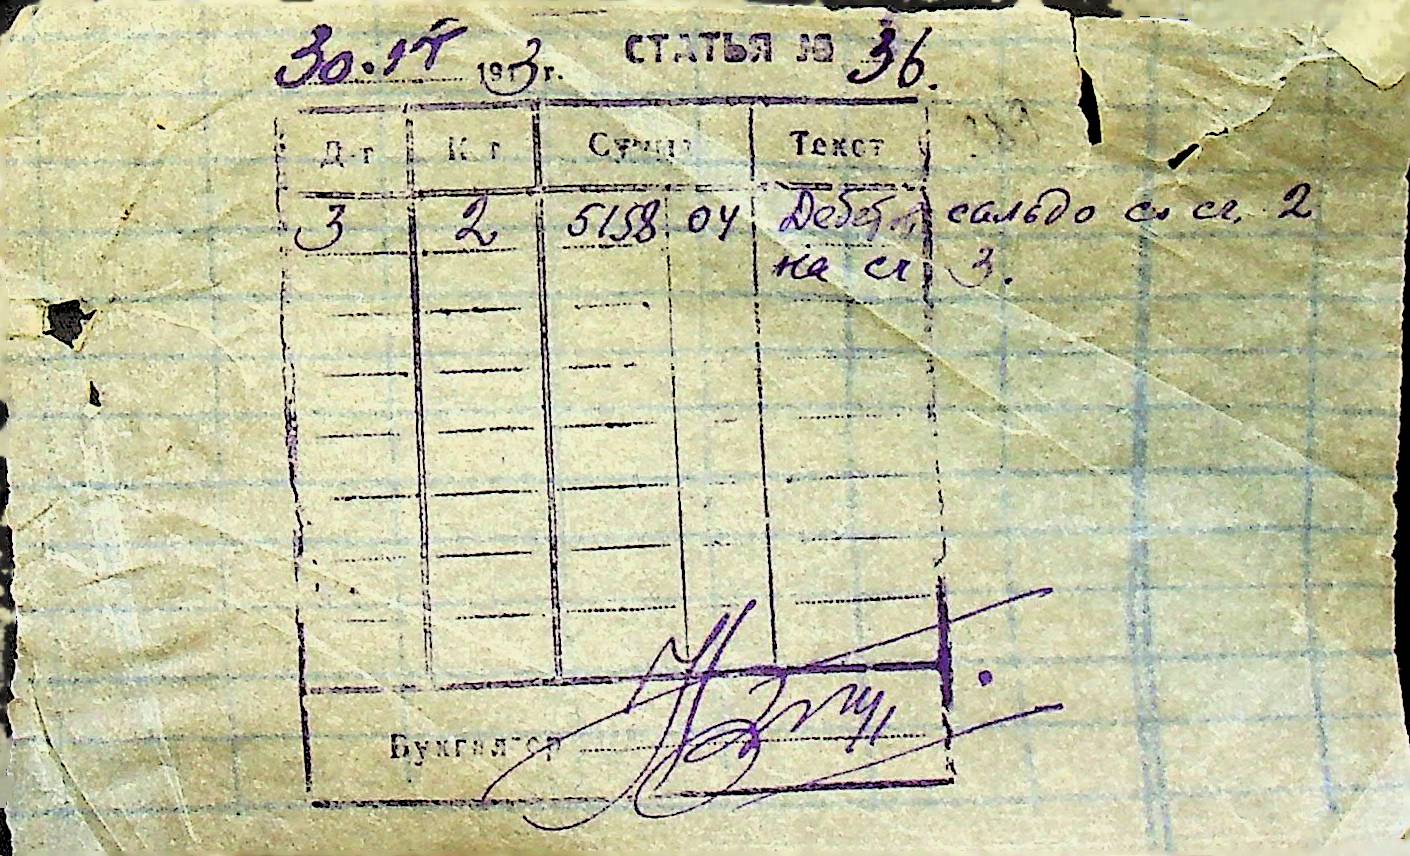 30. 193г. СТАТЬЯ № 36.
Д-т К-т Сумма Текст
3 2 5158 04 Дебет. сальдо сч сч. 2
на сч 3.
Бухгалтер